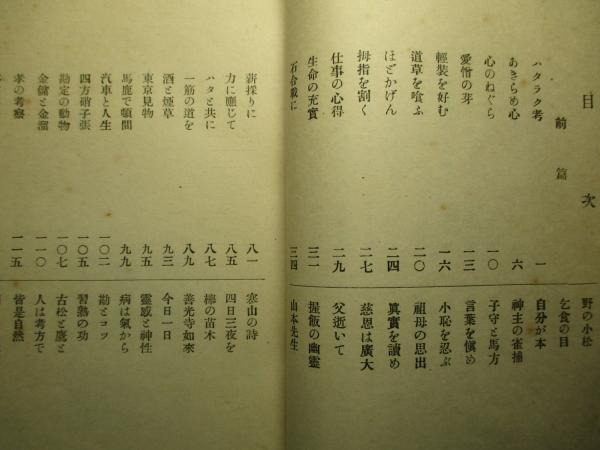 目次
前篇
ハタラク考 一
あきらめ心 六
心のねぐら 一〇
愛憎の芽 一三
輕裝を好む 一六
道草を喰ふ 二〇
ほどかげん 二四
拇指を割く 二七
仕事の心得 二九
生命の充實 三一
石合戰に 三四
野の小松
乞食の目
自分が本
神主の雀捕
子守と馬方
言葉を愼め
小恥を忍ぶ
祖母の思出
眞實を讀め
慈恩は廣大
父逝いて
握飯の幽靈
山本先生
薪採りに 八一
力に應じて 八五
ハタと共に 八七
一筋の道を 八九
酒と煙草 九三
東京見物 九五
馬鹿で頓間 九九
汽車と人生 一〇二
四方硝子張 一〇五
勘定の動物 一〇七
金儲と金溜 一一〇
孝の考察 一一五
寒山の詩
四日三夜を
樟の苗木
善光寺如來
今日一日
靈感と神性
病は氣から
勘とコツ
習熟の功
古松と鷹と
人は考方で
皆是自然